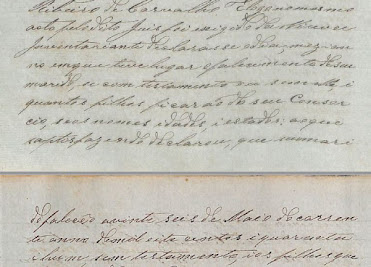 Ribeiro de Carvalho. E logo no mesmo
acto pelo dito Juis foi exigido da Viuva e
Inventariante declarasse o dia, mez, an
no em que teve lugar o falecimento de seu
marido, se com testamento ou sem elle, i
quantos filhos ficarão de seu Consor
cio, seus nomes, idades, i estados: ao que
satisfazendo declarou, que seu mari
do falecêo a vinte seis de Maio do corren
te anno de mil oito centos i quarenta
i hum, sem testamento, i os filhos que